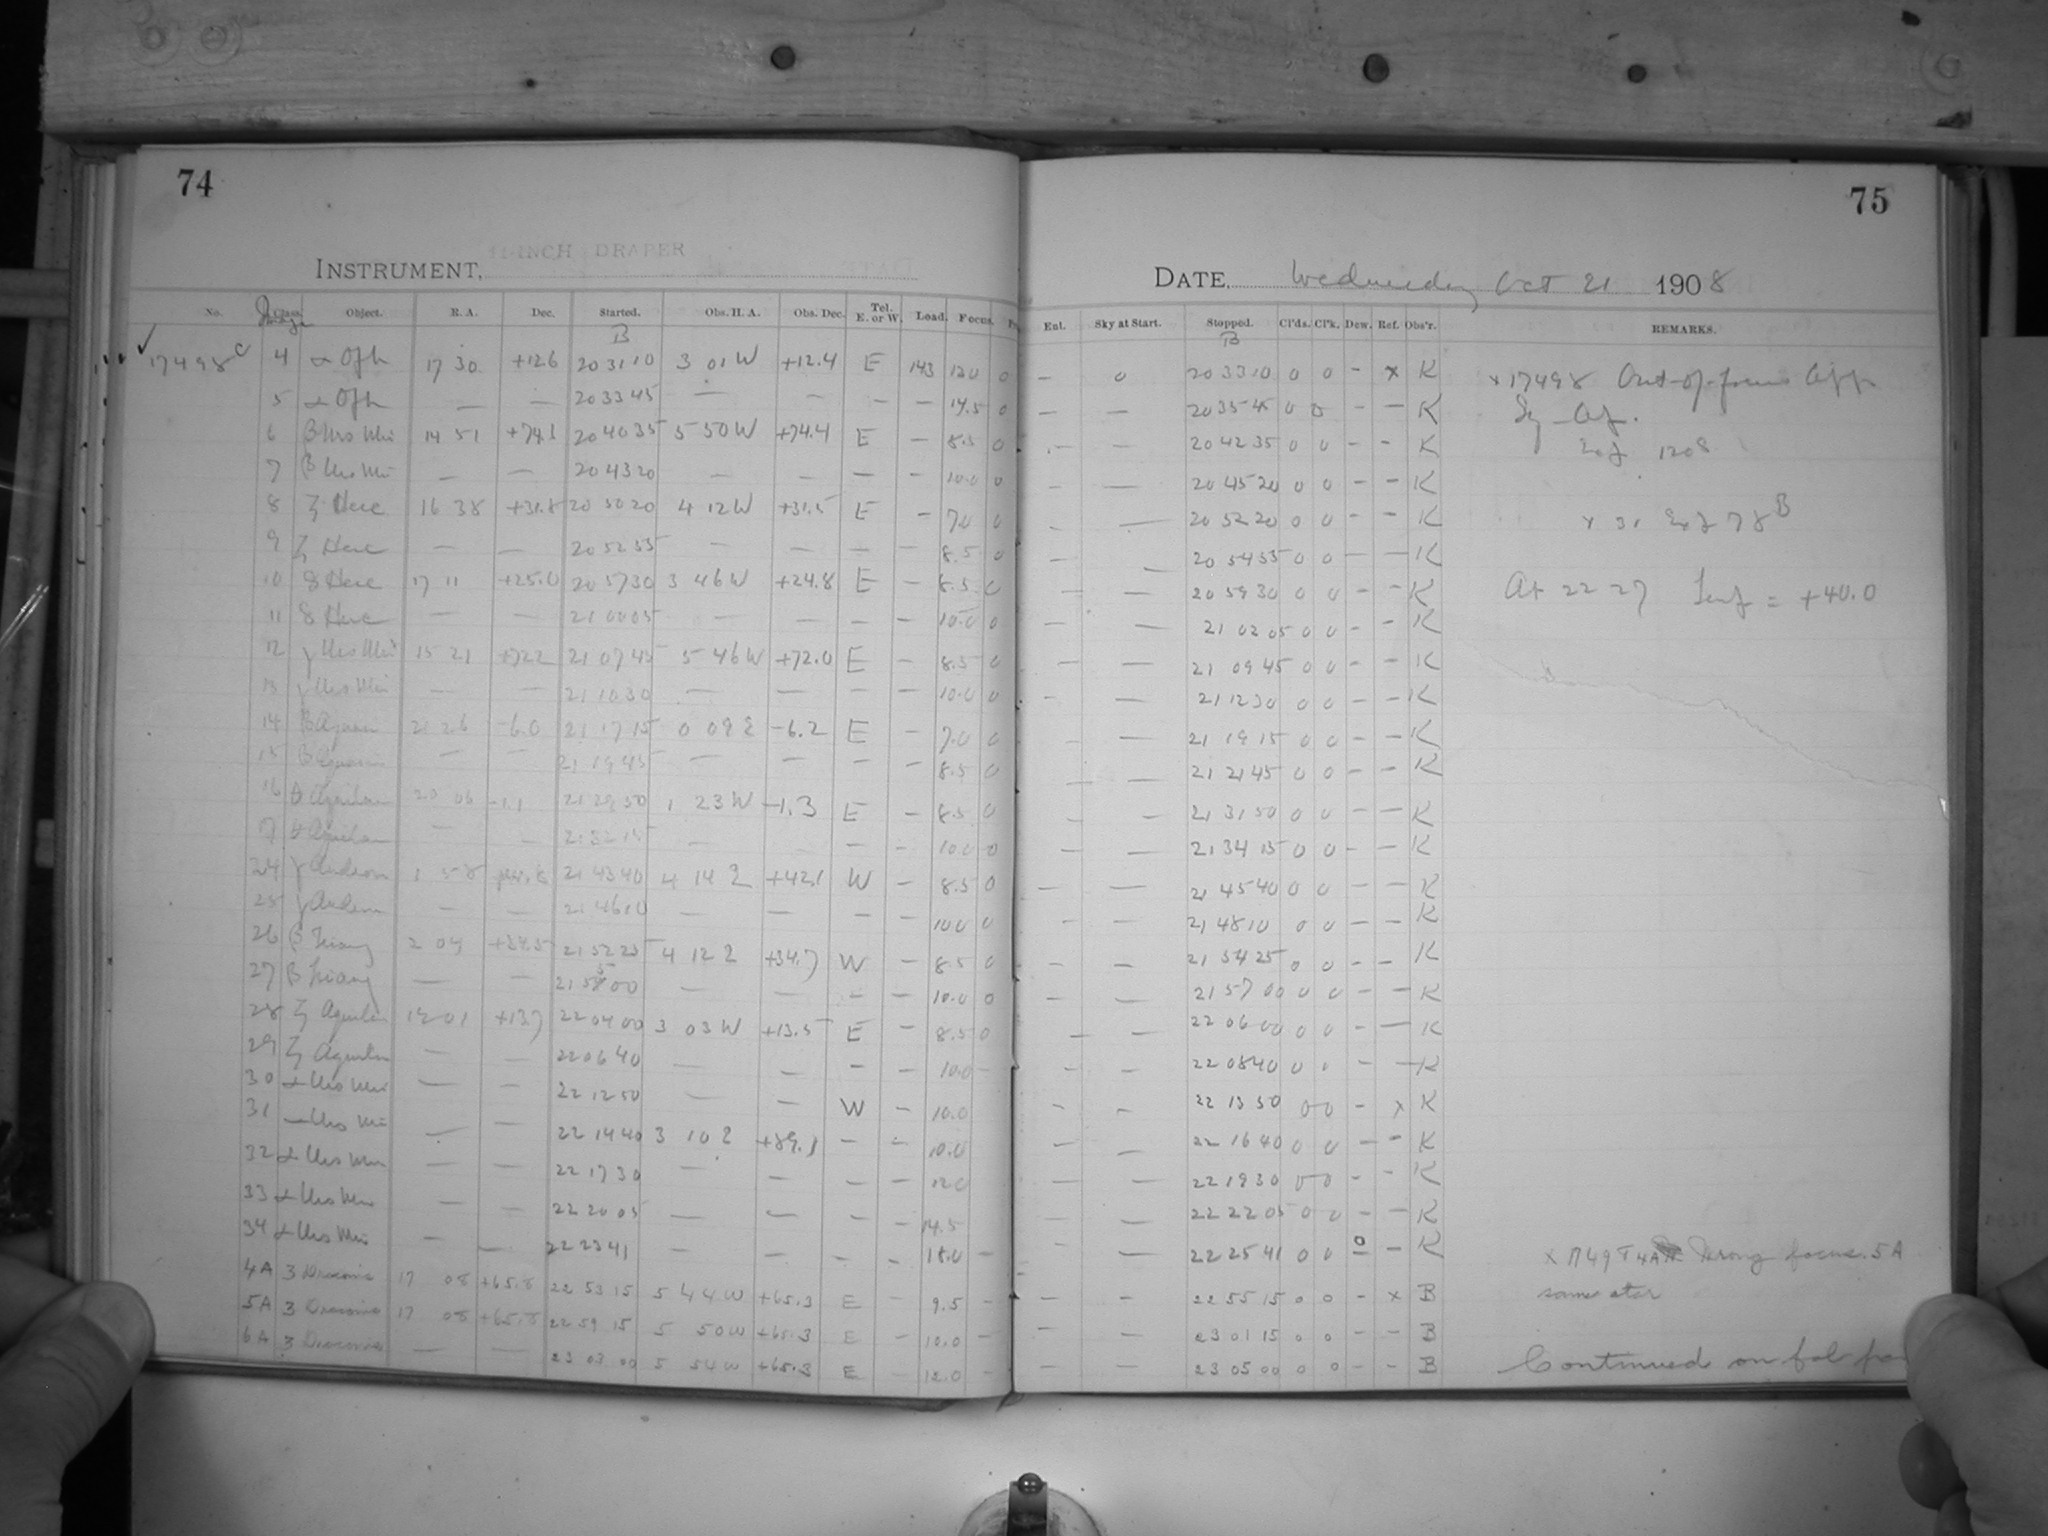 74
INSTRUMENT, 11-INCH DRAPER
No. Class. Image Object. R. A. Dec. Started. Obs. H. A. Obs. Dec. Tel. E. or W. Load. Focus.
B
17498 4 α Oph 17 30 +12.6 20 31 10 3 01 W +12.4 E 143 12.0 0
5 α Oph — — 20 33 45 — — — — 14.5 0
6 β Urs Min 14 51 +74.1 20 40 35 5 50 W +74.4 E — 8.5 0
7 β Urs Min — — 20 43 20 — — — — 10.0 0
8 ζ Herc 16 38 +31.8 20 50 20 4 12 W +31.5 E — 7.0 0
9 ζ Herc — — 20 52 35 — — — — 8.5 0
10 δ Herc 17 11 +25.0 20 57 30 3 46 W +24.8 E — 8.5 0
11 δ Herc — — 21 00 05 — — — — 10.0 0
12 γ Urs Min 15 21 +72.2 21 07 45 5 46 W +72.0 E — 8.5 0
13 γ Urs Min — — 21 10 30 — — — — 10.0 0
14 β Aquar 21 26 -6.0 21 17 15 0 09 E -6.2 E — 7.0 0
15 β Aquar — — 21 19 45 — — — — 8.5 0
16 θ Aquilae 20 06 -1.1 21 29 50 1 23 W -1.3 E — 8.5 0
17 θ Aquilae — — 21 32 15 — — — — 10.0 0
24 γ Androm 1 58 21 43 40 4 14 E +42.1 W — 8.5 0
25 γ Androm — — 21 46 10 — — — — 10.0 0
26 β Triang 2 04 +34.5 21 52 25 4 12 E +34.7 W — 8.5 0
27 β Triang — — 21 55 00 — — — — 10.0 0
28 ζ Aquilae 19 01 +13.7 22 04 00 3 03 W +13.5 E — 8.5 0
29 ζ Aquilae — — 22 06 40 — — — — 10.0 —
30 α Urs Min — — 22 12 50 — — W — 10.0
31 α Urs Min — — 22 14 40 3 10 E +89.1 — — 10.0
32 α Urs Min — — 22 17 30 — — — — 12.0
33 α Urs Min — — 22 20 05 — — — — 14.5
34 α Urs Min — — 22 23 41 — — — — 18.0 —
4A ζ Draconis 17 08 +65.8 22 53 15 5 44 W +65.3 E — 9.5 —
5A ζ Draconis 17 08 +65.8 22 59 15 5 50 W +65.3 E — 10.0 —
6A ζ Draconis — — 23 03 00 5 54 W +65.3 E — 12.0 —
75
DATE, Wednesday Oct 21 1908
Ent. Sky at Start. Stopped. Cl'ds. Cl'k. Dew. Ref. Obs'r. REMARKS.
B
— 0 20 33 10 0 0 — x K x 17498 Out-of-focus
— — 20 35 45 0 0 — — K
— — 20 42 35 0 0 — — K
— — 20 45 20 0 0 — — K
— — 20 52 20 0 0 — — K x 31 78 B
— 20 54 35 0 0 — — K
— — 20 59 30 0 0 — — K At 22 27 = +40.0
— — 21 02 05 0 0 — — K
— — 21 09 45 0 0 — — K
— — 21 12 30 0 0 — — K
— — 21 19 15 0 0 — — K
— — 21 21 45 0 0 — — K
— — 21 31 50 0 0 — — K
— — 21 34 15 0 0 — — K
— — 21 45 40 0 0 — — K
— — 21 48 10 0 0 — — K
— — 21 54 25 0 0 — — K
— — 21 57 00 0 0 — — K
— — 22 06 00 0 0 — — K
— — 22 08 40 0 0 — — K
— — 22 13 50 0 0 — x K
— — 22 16 40 0 0 — — K
22 19 30 0 0 — — K
— — 22 22 05 0 0 K
— — 22 25 41 0 0 0 — K x 17498 4A wrong focus. 5A
— — 22 55 15 0 0 — x B same star
— — 23 01 15 0 0 — — B
— — 23 05 00 0 0 — — B Continued on fol